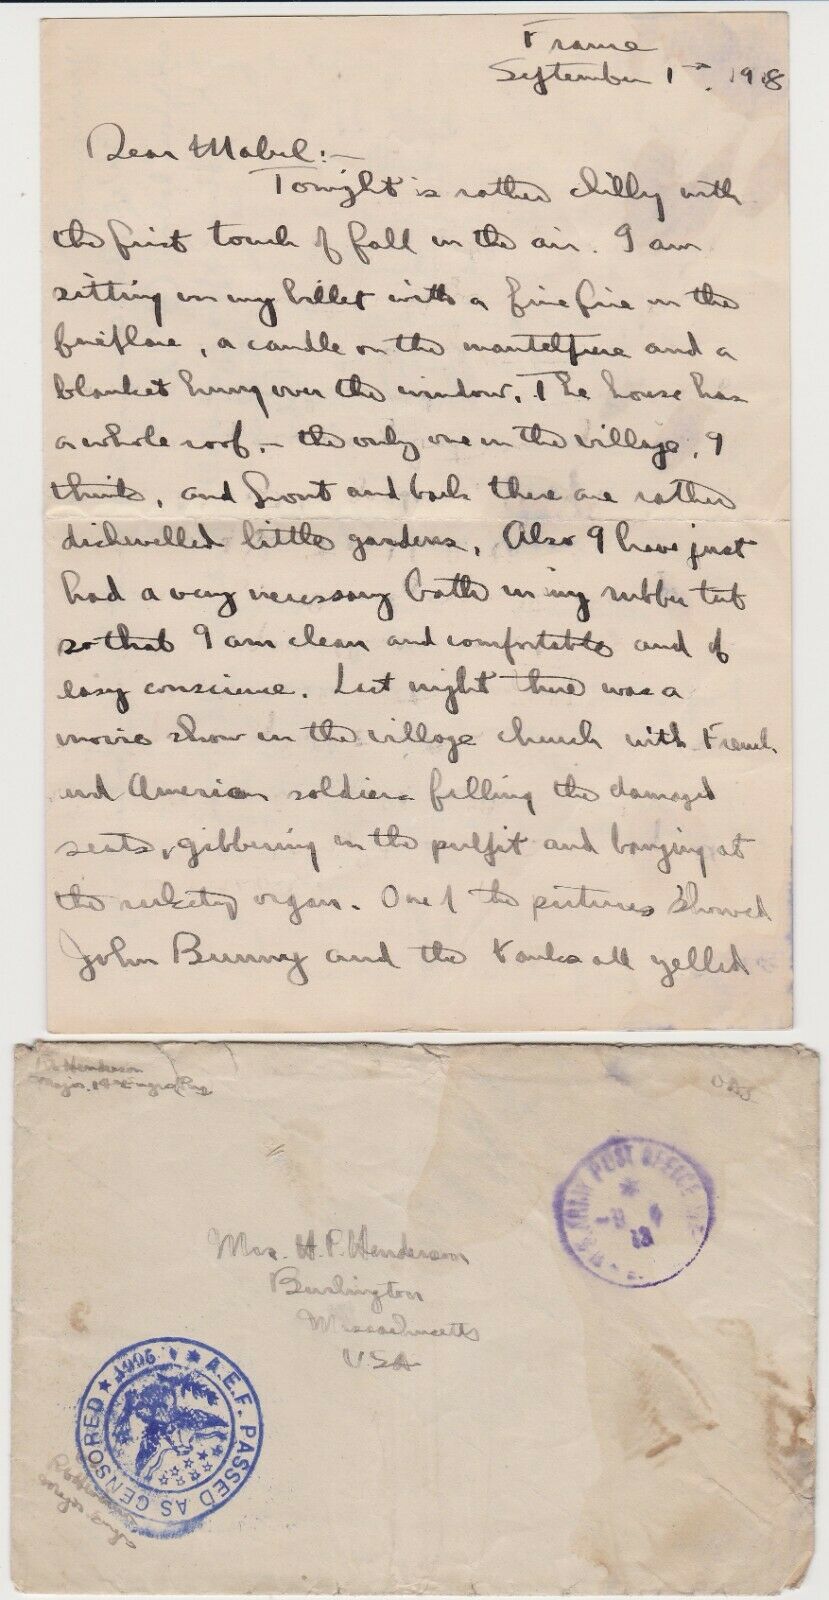 France
September 1st, 1918
Dear Mabel:-
Tonight is rather chilly with
the first touch of fall in the air. I am
sitting in my billet with a fine fire in the
fireplace, a candle on the mantelpiece and a
blanket hung over the window. The house has
a whole roof,- the only one in the village, I
think, and front and back there are rather
dishevelled little gardens. Also I have just
had a very necessary bath in my rubber tub
so that I am clean and comfortable and of
easy conscience. Last night there was a
movie show in the village church with French
and American soldiers filling the damaged
seats, gibbering in the pulpit and banging at
the rickety organ. One of the pictures showed
John Bunny and the Yanks all yelled
Henderson
Major, 14 Engrs Rwy
U.S. ARMY POST OFFICE
Mrs. H. P. Henderson
Burlington
Massachusetts
USA
A.E.F. PASSED AS CENSORED